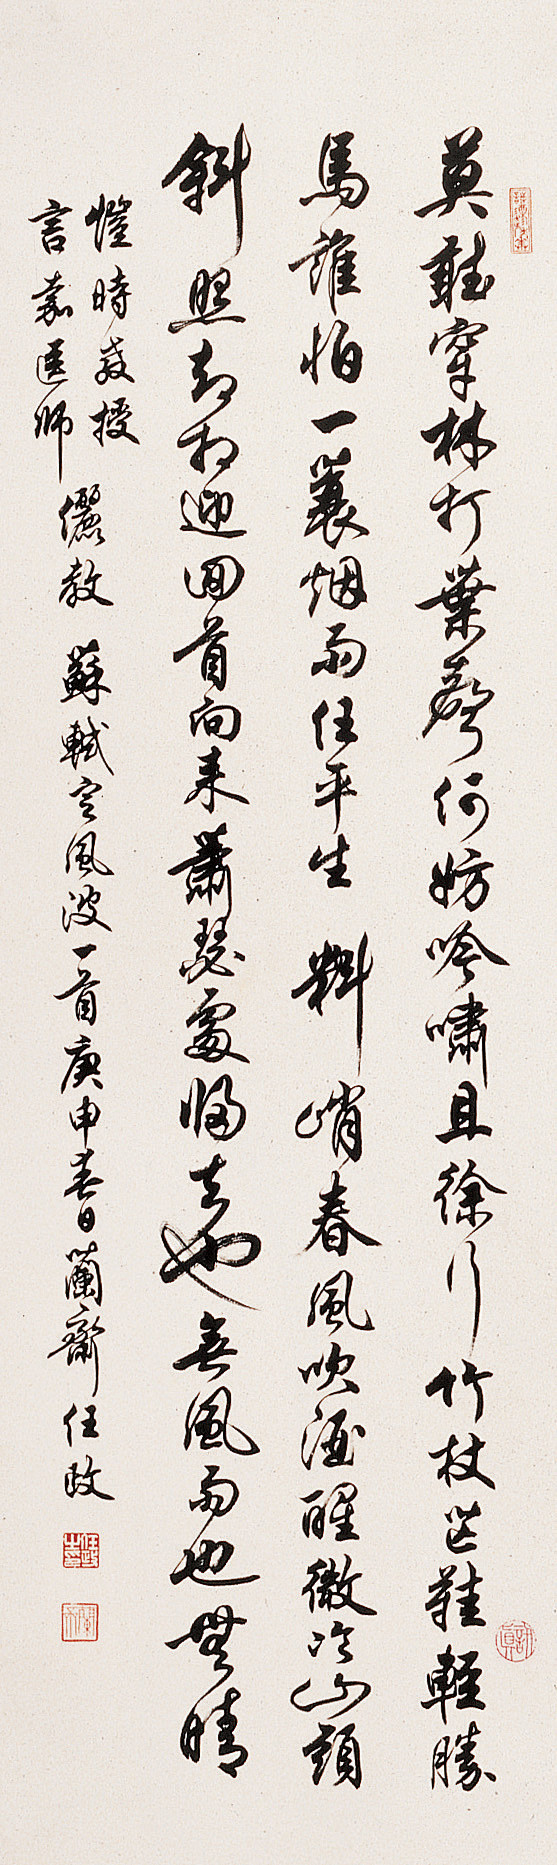 莫聽穿林打葉聲何妨吟嘯且徐行竹杖芒鞋輕勝
馬誰怕一蓑烟雨任平生料峭春風吹酒醒微冷山頭
斜照却相迎回首向来蕭瑟處歸去也無風雨也無晴
愷時教授
言嘉医師
儷教 蘇軾定風波一首庚申春日蘭齋任政